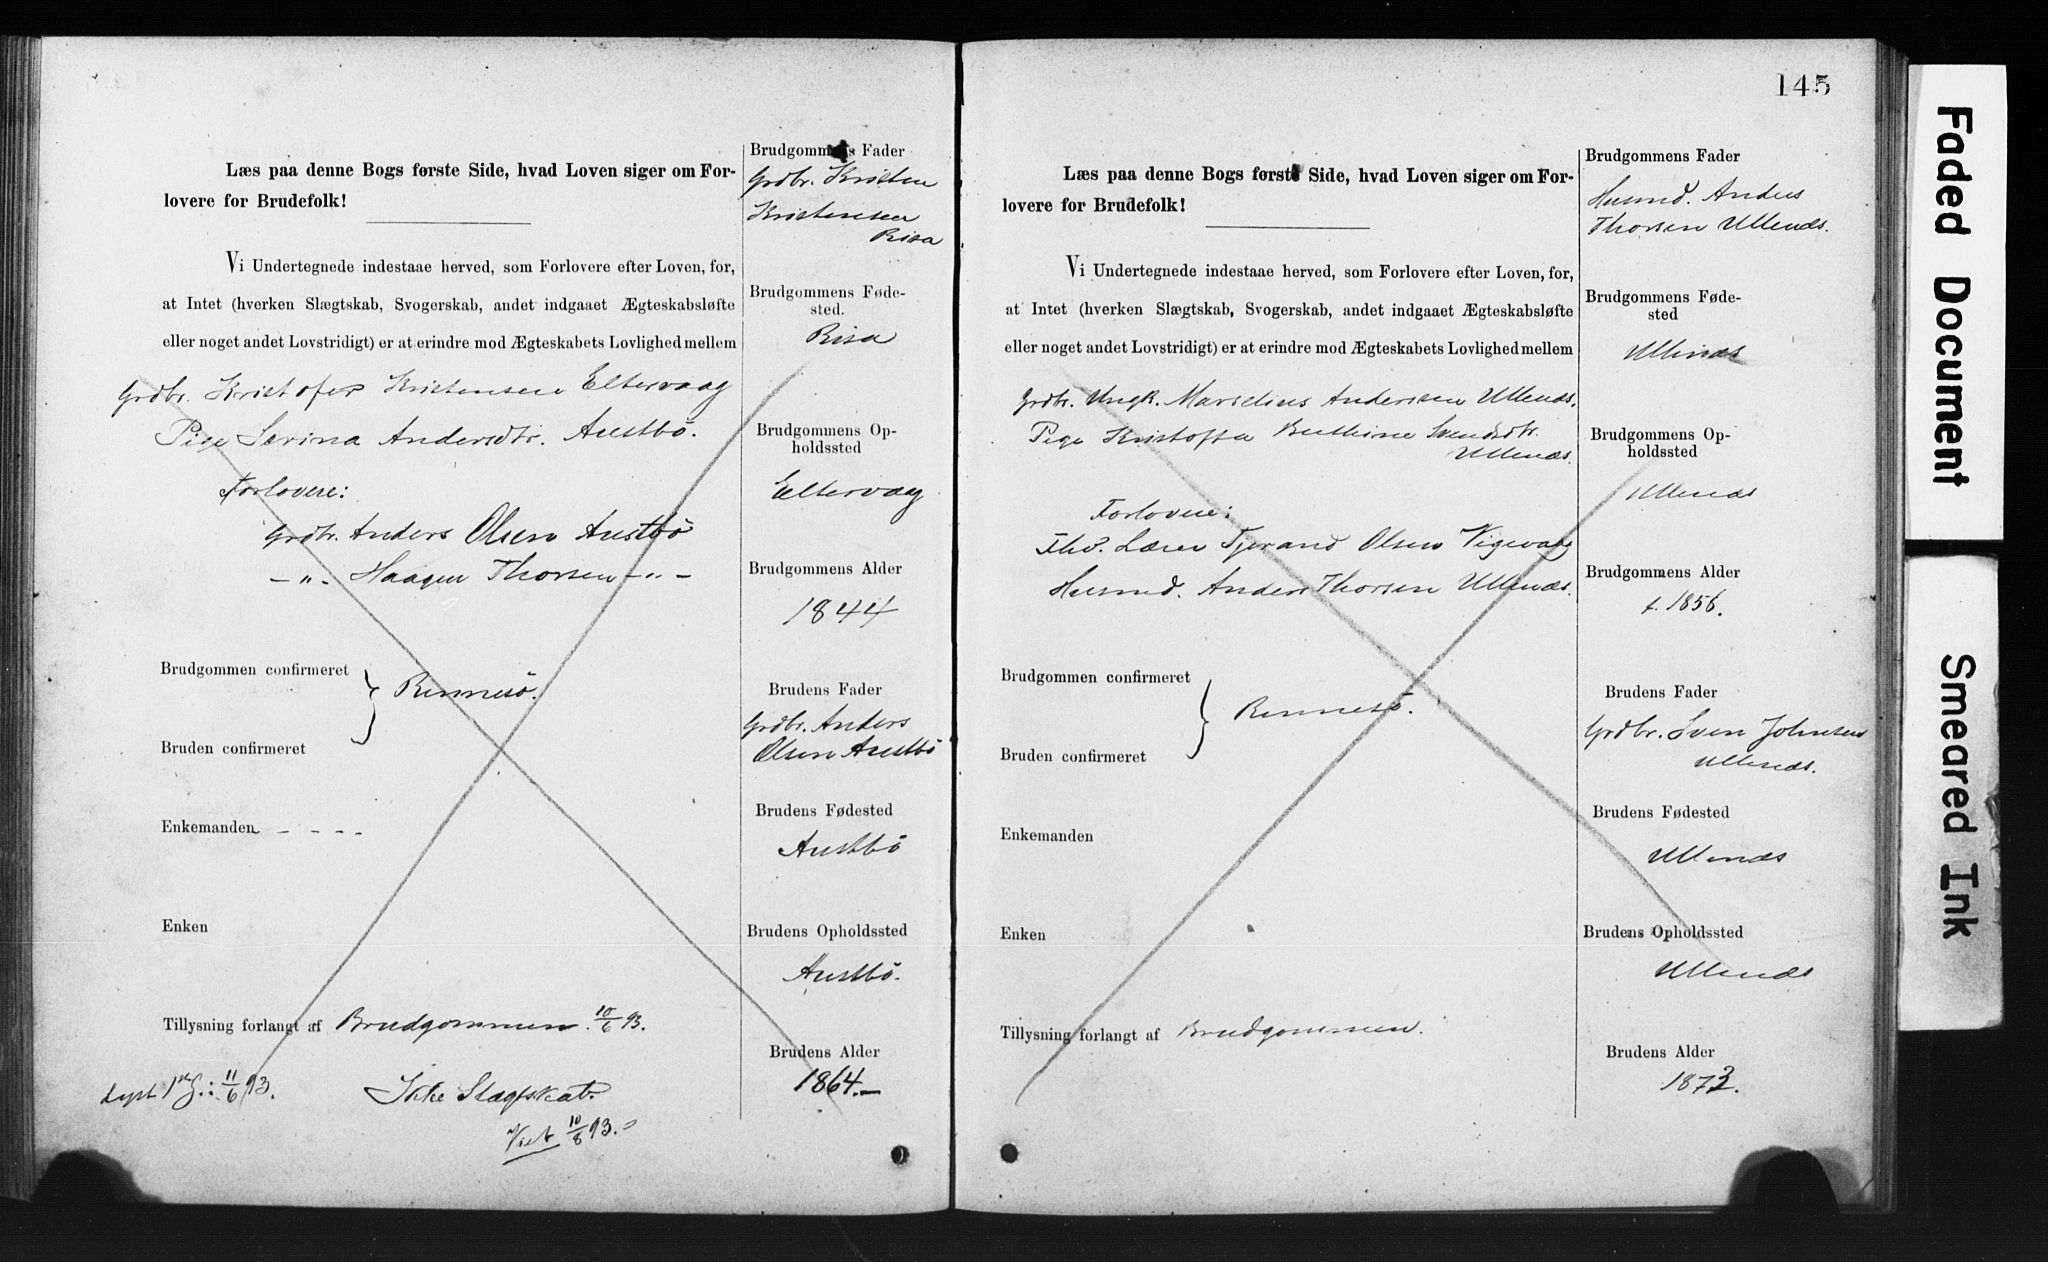 Læs paa denne Bogs første Side, hvad Loven siger om For-
lovere for Brudefolk!
Vi Undertegnede indestaae herved, som Forlovere efter Loven, for,
at Intet (hverken Slægtskab, Svogerskab, andet indgaaet Ægteskabsløfte
eller noget andet Lovstridigt) er at erindre mod Ægteskabets Lovlighed mellem
Grdbr. Kristofer Kristensen Eltervaag
Pige Serina Andersdtr. Austbö.
Forlovere:
Grdbr. Anders Olsen Austbö
-"- Haagen Thorsen -"-
Brudgommen confirmeret
Rennesö.
Bruden confirmeret
Enkemanden - - - -
Enken
Tillysning forlangt af Brudgommen 10/6 93.
Lyst 1ste G.: 11/6 93.
Ikke Slægtskab.
Viet 10/8 93.
Brudgommens Fader
Grdbr. Kristen
Kristensen
Risa
Brudgommens Føde-
sted.
Risa
Brudgommens Op-
holdssted
Eltervaag
Brudgommens Alder
1844
Brudens Fader
Grdbr. Anders
Olsen Austbö
Brudens Fødested
Austbö
Brudens Opholdssted
Austbö.
Brudens Alder
1864.-
145
Læs paa denne Bogs første Side, hvad Loven siger om For-
lovere for Brudefolk!
Vi Undertegnede indestaae herved, som Forlovere efter Loven, for,
at Intet (hverken Slægtskab, Svogerskab, andet indgaaet Ægteskabsløfte
eller noget andet Lovstridigt) er at erindre mod Ægteskabets Lovlighed mellem
Grdbr. Ungk. Marselius Andersen Ullenæs.
Pige Kristofa Svendsdtr.
Ullenæs.
Forlovere:
Fhv. Lærer Tjerand Olsen Vigevaag
Husmd. Anders Thorsen Ullenæs.
Brudgommen confirmeret
Rennesö.
Bruden confirmeret
Enkemanden
Enken
Tillysning forlangt af Brudgommen.
Brudgommens Fader
Husmd. Anders
Thorsen Ullenæs.
Brudgommens Føde-
sted
Ullenæs
Brudgommens Op-
holdssted
Ullenæs
Brudgommens Alder
f. 1856.
Brudens Fader
Grdbr. Sven Johnsen
Ullenæs.
Brudens Fødested
Ullenæs
Brudens Opholdssted
Ullenæs
Brudens Alder
1873.
Faded Document
Smeared Ink